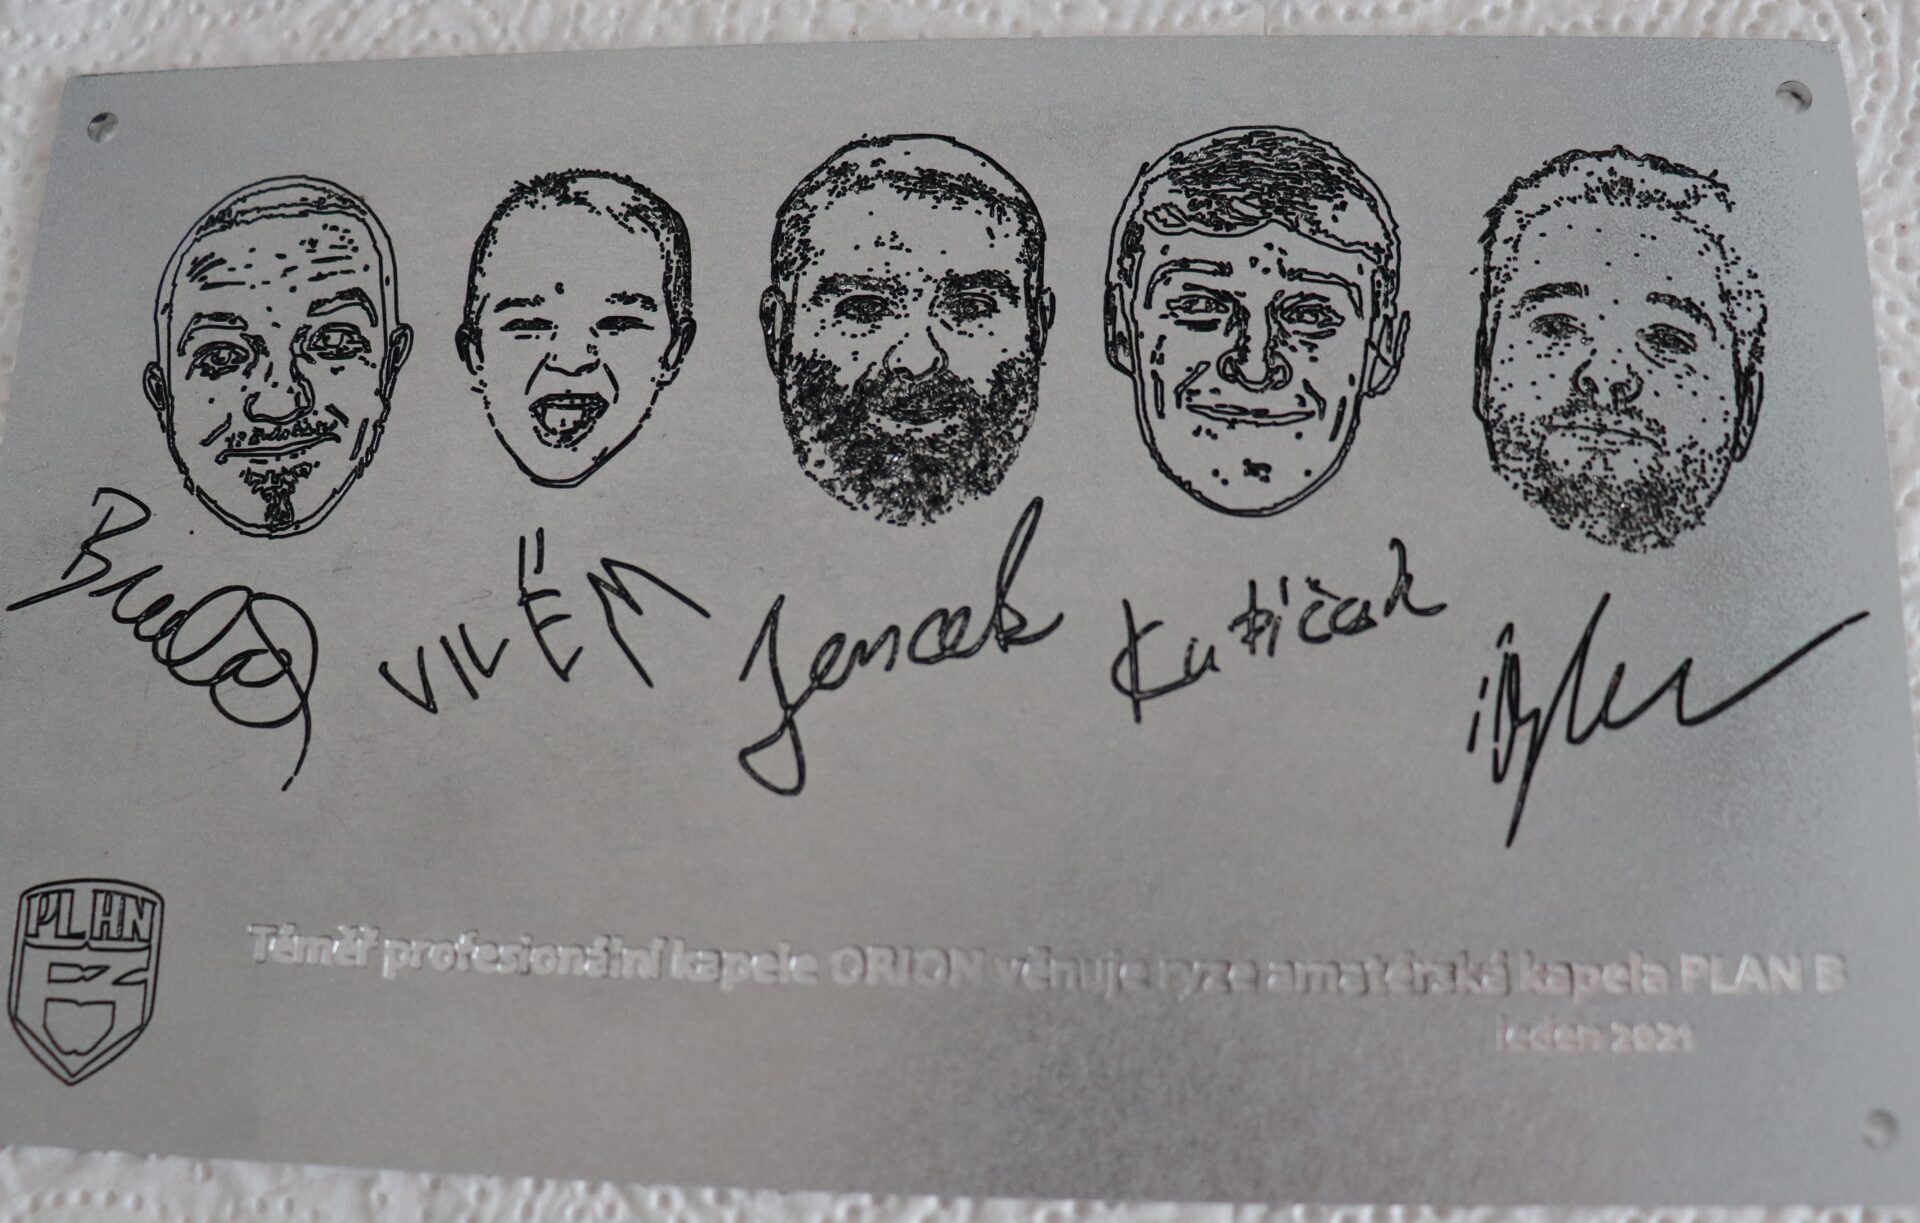 VILÉM
Jencek
Kutičák
PLAN
B
Téměř profesionální kapele ORION věnuje ryze amatérská kapela PLAN B
leden 2021